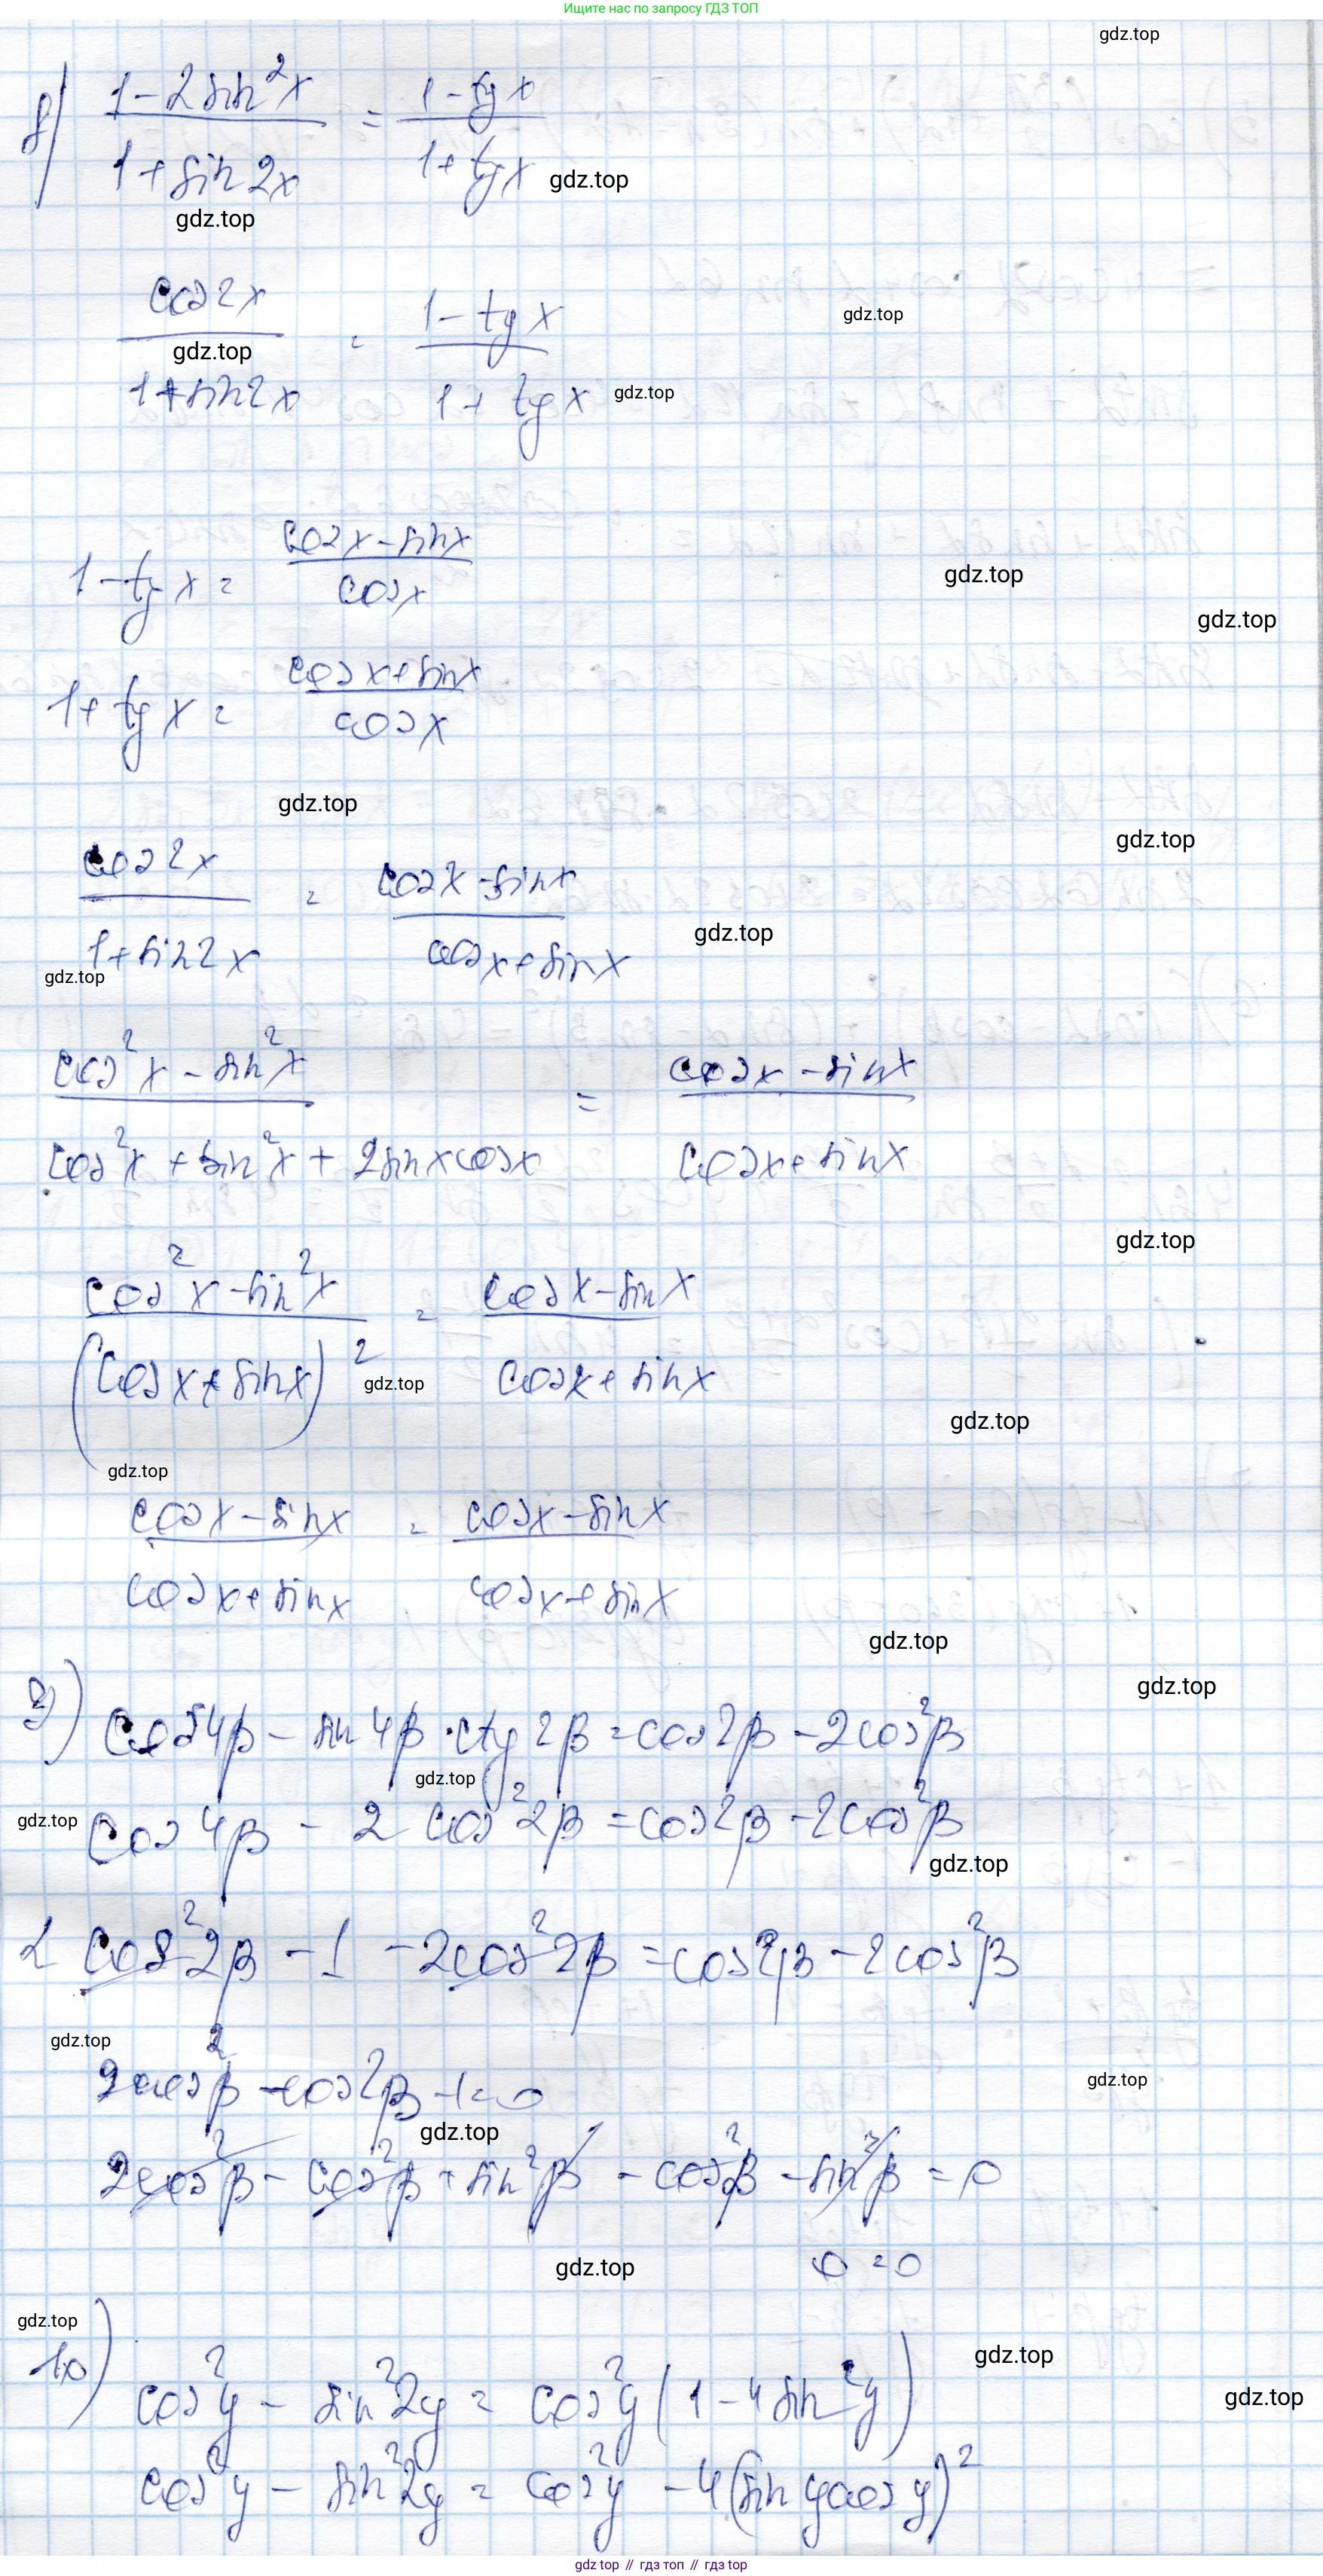 Ищите нас по запросу ГДЗ ТОП
gdz.top
8) (1-2sin²x)/(1+sin2x) = (1-tgx)/(1+tgx)
gdz.top
gdz.top
cos2x/(1+sin2x) = (1-tgx)/(1+tgx)
gdz.top
gdz.top
gdz.top
1-tgx = (cosx-sinx)/cosx
gdz.top
gdz.top
1+tgx = (cosx+sinx)/cosx
gdz.top
gdz.top
cos2x/(1+sin2x) = (cosx-sinx)/(cosx+sinx)
gdz.top
gdz.top
(cos²x-sin²x)/(cos²x+sin²x+2sinxcosx) = (cosx-sinx)/(cosx+sinx)
gdz.top
(cos²x-sin²x)/(cosx+sinx)² = (cosx-sinx)/(cosx+sinx)
gdz.top
gdz.top
gdz.top
(cosx-sinx)/(cosx+sinx) = (cosx-sinx)/(cosx+sinx)
gdz.top
gdz.top
9) cos4β - sin4β·ctg2β = cos2β - 2cos²β
gdz.top
gdz.top
cos4β - 2cos²2β = cos2β - 2cos²β
gdz.top
2cos²2β - 1 - 2cos²2β = cos2β - 2cos²β
gdz.top
2cos²β - cos2β - 1 = 0
gdz.top
gdz.top
2cos²β - cos²β + sin²β - cos²β - sin²β = 0
0 = 0
gdz.top
gdz.top
10) cos²y - sin²2y = cos²y(1-4sin²y)
gdz.top
gdz.top
cos²y - sin²2y = cos²y - 4(sinycosy)²
gdz.top // гдз топ // gdz.top